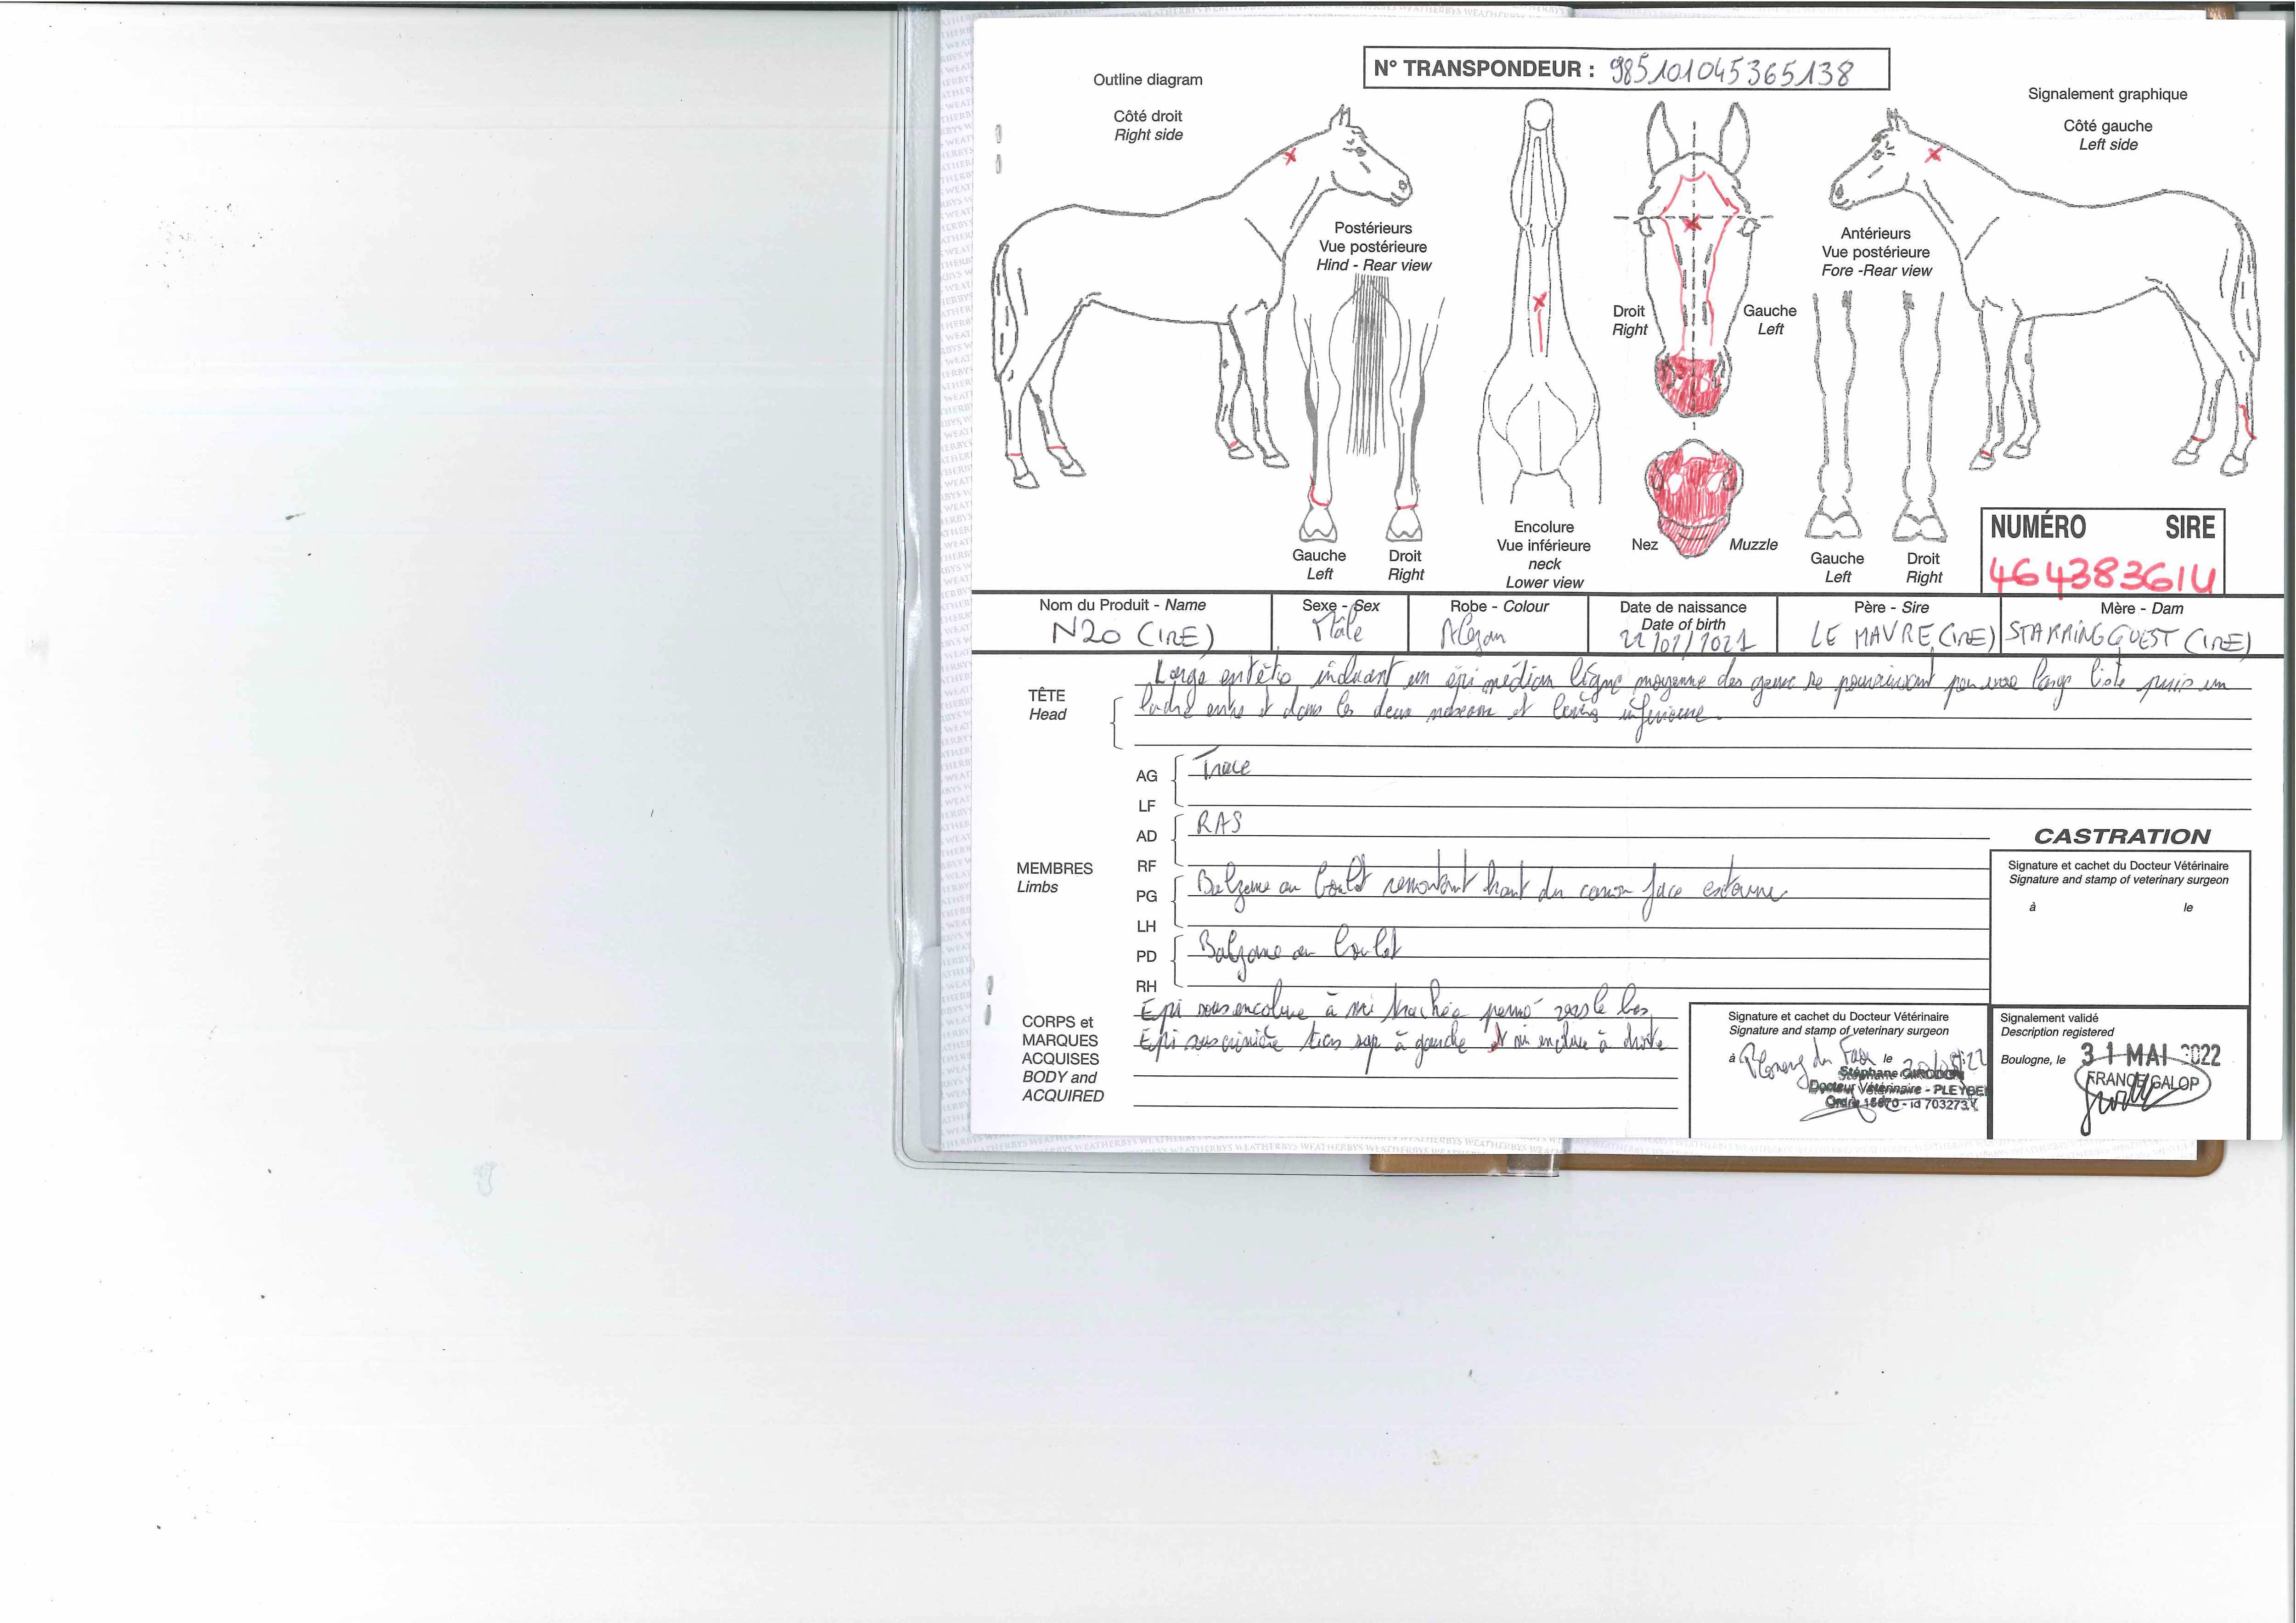 N° TRANSPONDEUR : 985101045365138
Outline diagram
Côté droit
Right side
Signalement graphique
Côté gauche
Left side
Postérieurs
Vue postérieure
Hind - Rear view
Antérieurs
Vue postérieure
Fore -Rear view
Droit
Right
Gauche
Left
Gauche
Left
Droit
Right
Encolure
Vue inférieure
neck
Lower view
Nez
Muzzle
Gauche
Left
Droit
Right
NUMÉRO SIRE
46438361U
Nom du Produit - Name
N2O (IRE)
Sexe - Sex
Mâle
Robe - Colour
Alezan
Date de naissance
Date of birth
Père - Sire
LE HAVRE (IRE)
Mère - Dam
STARRING GUEST (IRE)
TÊTE
Head
Large en tête incluant un épi médian ligne moyenne des yeux se poursuivant par une large liste puis un
ladre entre et dans les deux naseaux et lèvre inférieure.
MEMBRES
Limbs
AG
LF
Trace
AD
RF
RAS
PG
LH
Balzane au boulet remontant haut du canon face externe
PD
RH
Balzane au boulet
CORPS et
MARQUES
ACQUISES
BODY and
ACQUIRED
Epi sous encolure à mi trachée penné vers le bas
Epi sous crinière tiers sup à gauche et mi encolure à droite
CASTRATION
Signature et cachet du Docteur Vétérinaire
Signature and stamp of veterinary surgeon
à le
Signature et cachet du Docteur Vétérinaire
Signature and stamp of veterinary surgeon
à le
Stéphane GIRODON
Docteur Vétérinaire - PLEYBEN
Signalement validé
Description registered
Boulogne, le 31 MAI 2022
FRANCE GALOP
WEATHERBYS